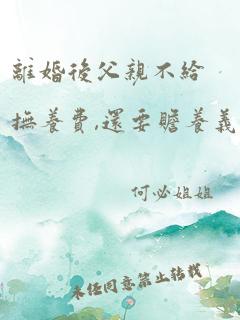 離婚後父親不給
撫養費,還要贍養義
何必姐姐
未經同意禁止轉載